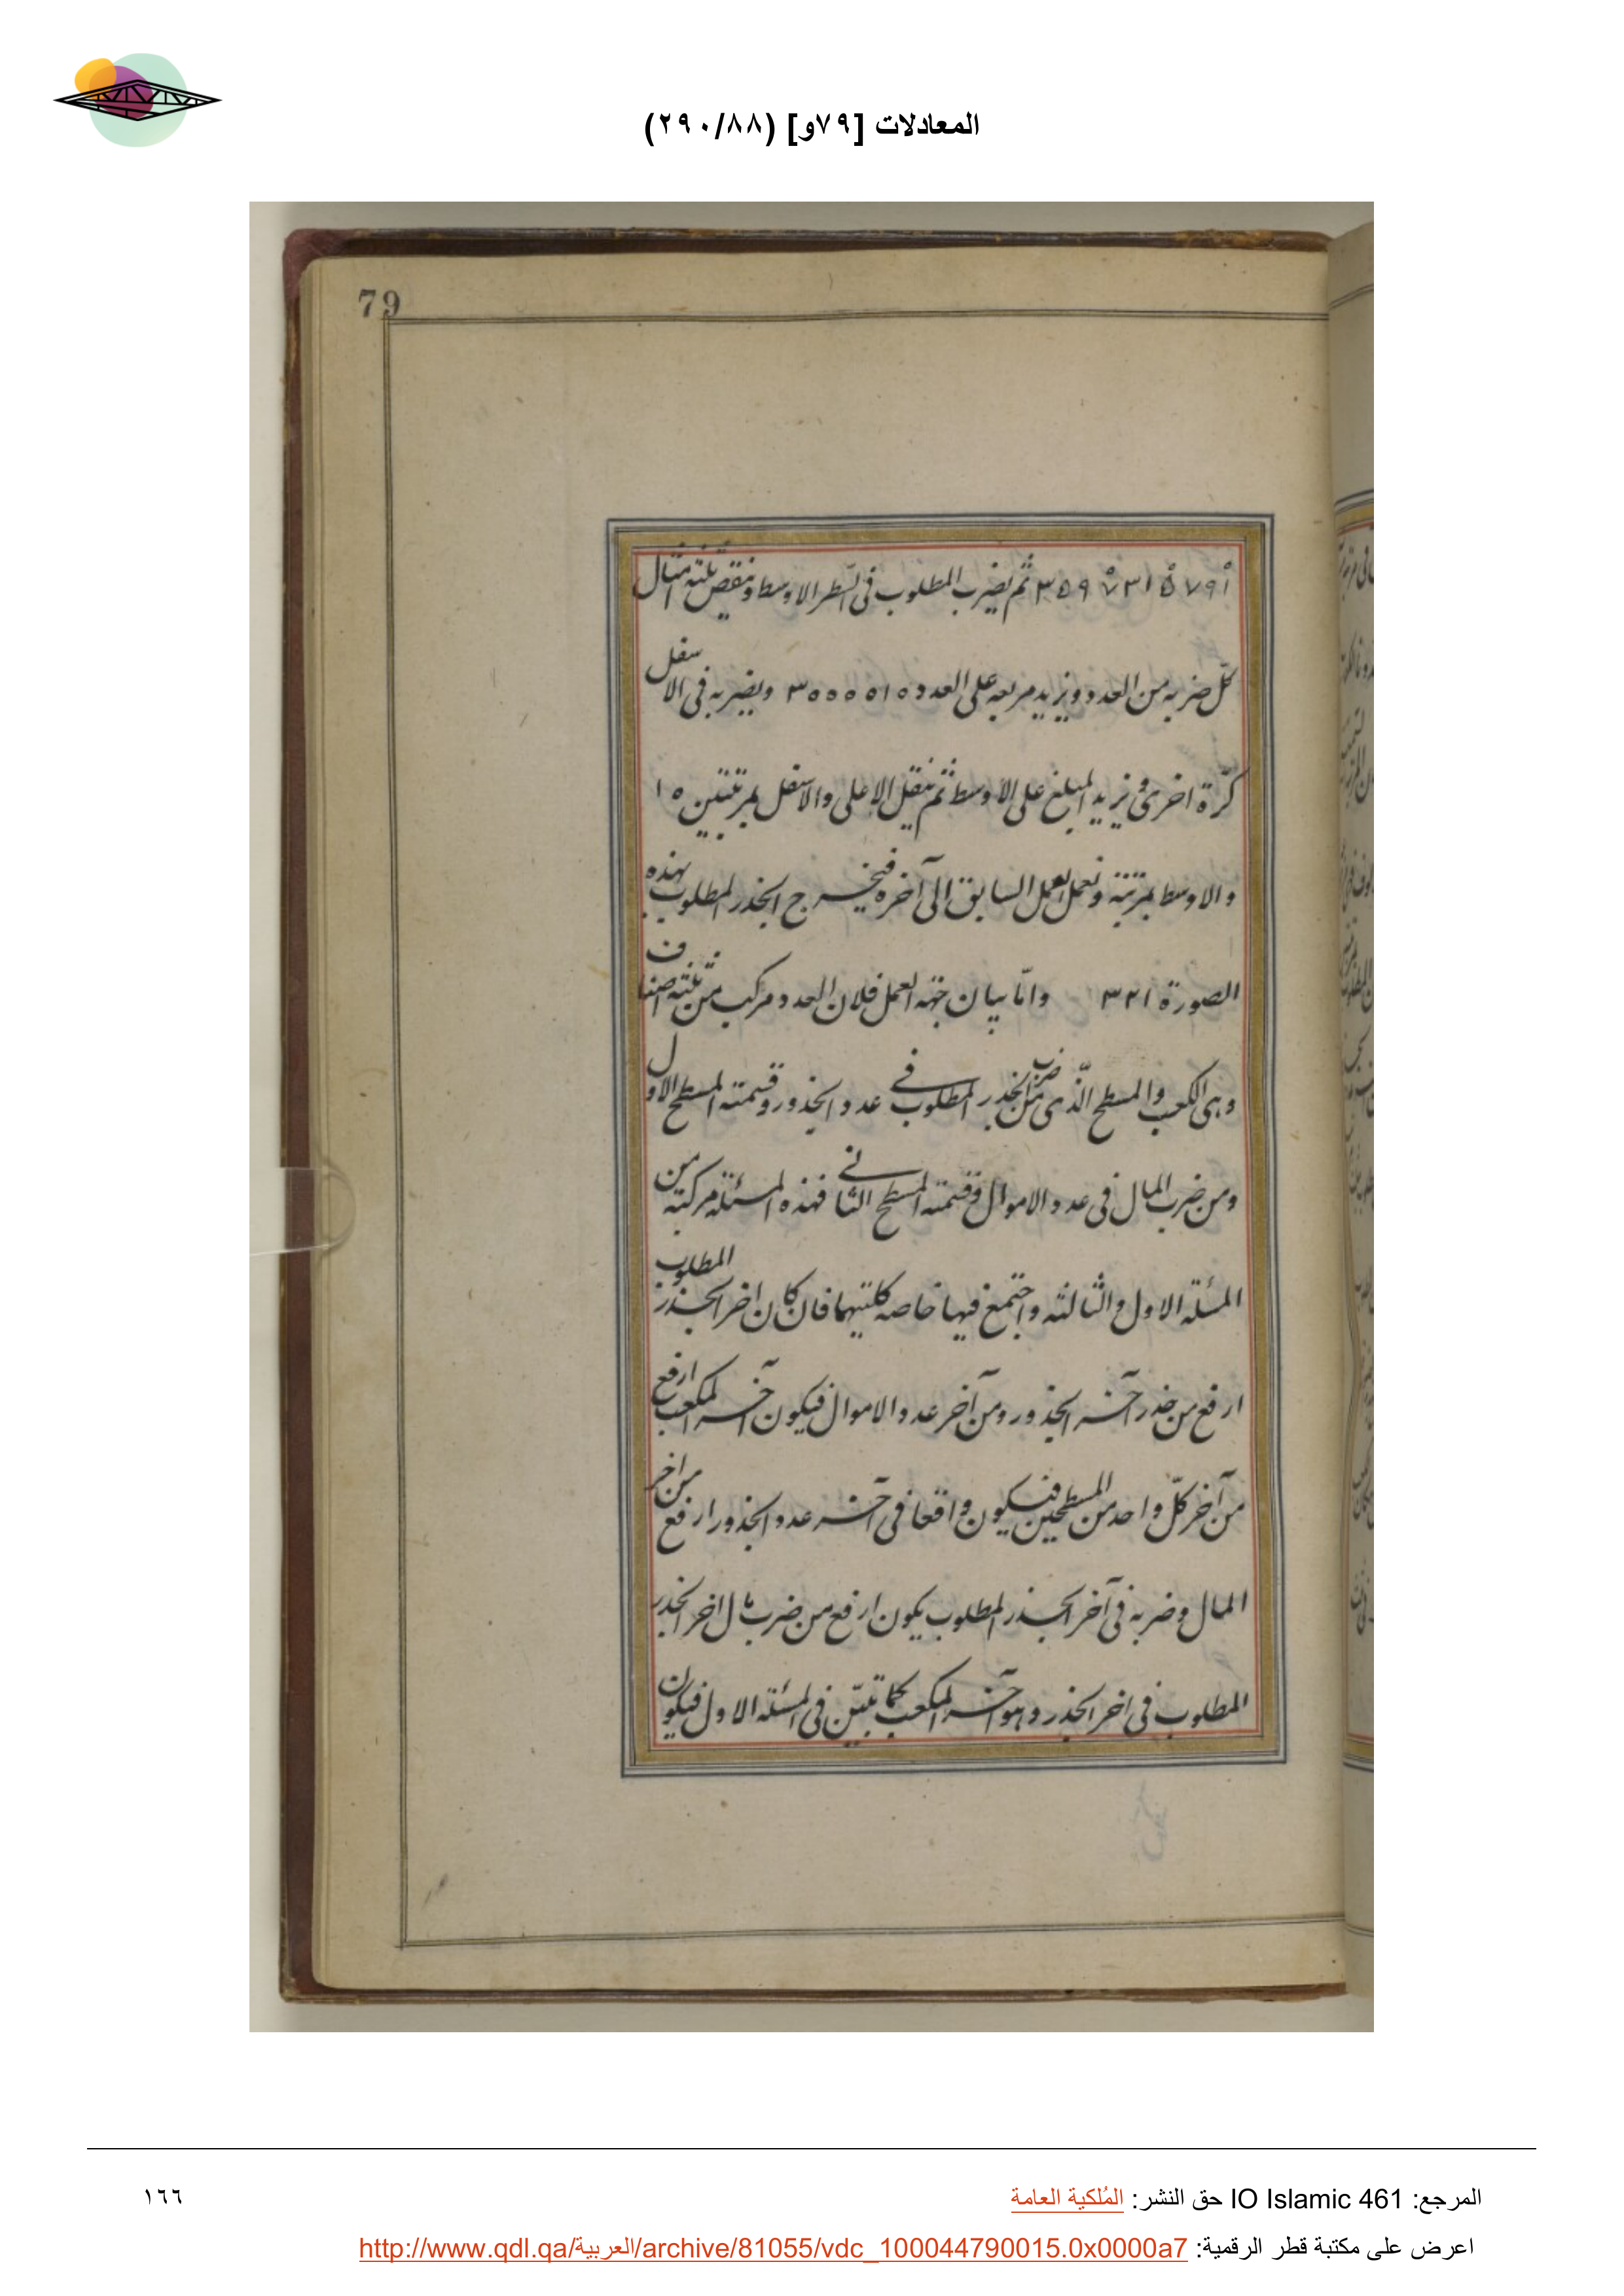 المعادلات [٧٩و] (٢٩٠/٨٨)
79
ثم يضرب المطلوب فى السّطر الاوسط وننقص ثلثة امثال
كلّ ضربه من العدد ونزيد مربعه على العدد ويضربه فى الاسفل
كرّة اخرى ونزيد المبلغ على الاوسط ثم ننقل الاعلى والاسفل بمرتبتين
والاوسط بمرتبة ونعمل العمل السابق الى آخره فيخرج الجذر المطلوب بهذه
الصورة ٣٢١ وامّا بيان جهة العمل فلان العدد مركب من ثلثة اصناف
وهى الكعب والمسطح الّذى من ضرب الجذر المطلوب فى عدد الجذور وقسمته المسطح الاول
ومن ضرب المال فى عدد الاموال وقسمته المسطح الثانى فهذه المسئلة مركبة من
المسئلة الاول والثالثة واجتمع فيها خاصه كلتيهما فان كان اخر الجذر المطلوب
ارفع من جذر آخر الجذور ومن آخر عدد الاموال فيكون آخر المكعب ارفع
من آخر كلّ واحد من المسطحين فيكون واقعا فى آخر عدد الجذور ارفع من اخر
المال وضربه فى آخر الجذر المطلوب يكون ارفع من ضرب مال اخر الجذر
المطلوب فى اخر الجذر وهو آخر المكعب كما تبيّن فى المسئلة الاول فيكون
المرجع: IO Islamic 461 حق النشر: المُلكية العامة
١٦٦
اعرض على مكتبة قطر الرقمية: http://www.qdl.qa/العربية/archive/81055/vdc_100044790015.0x0000a7